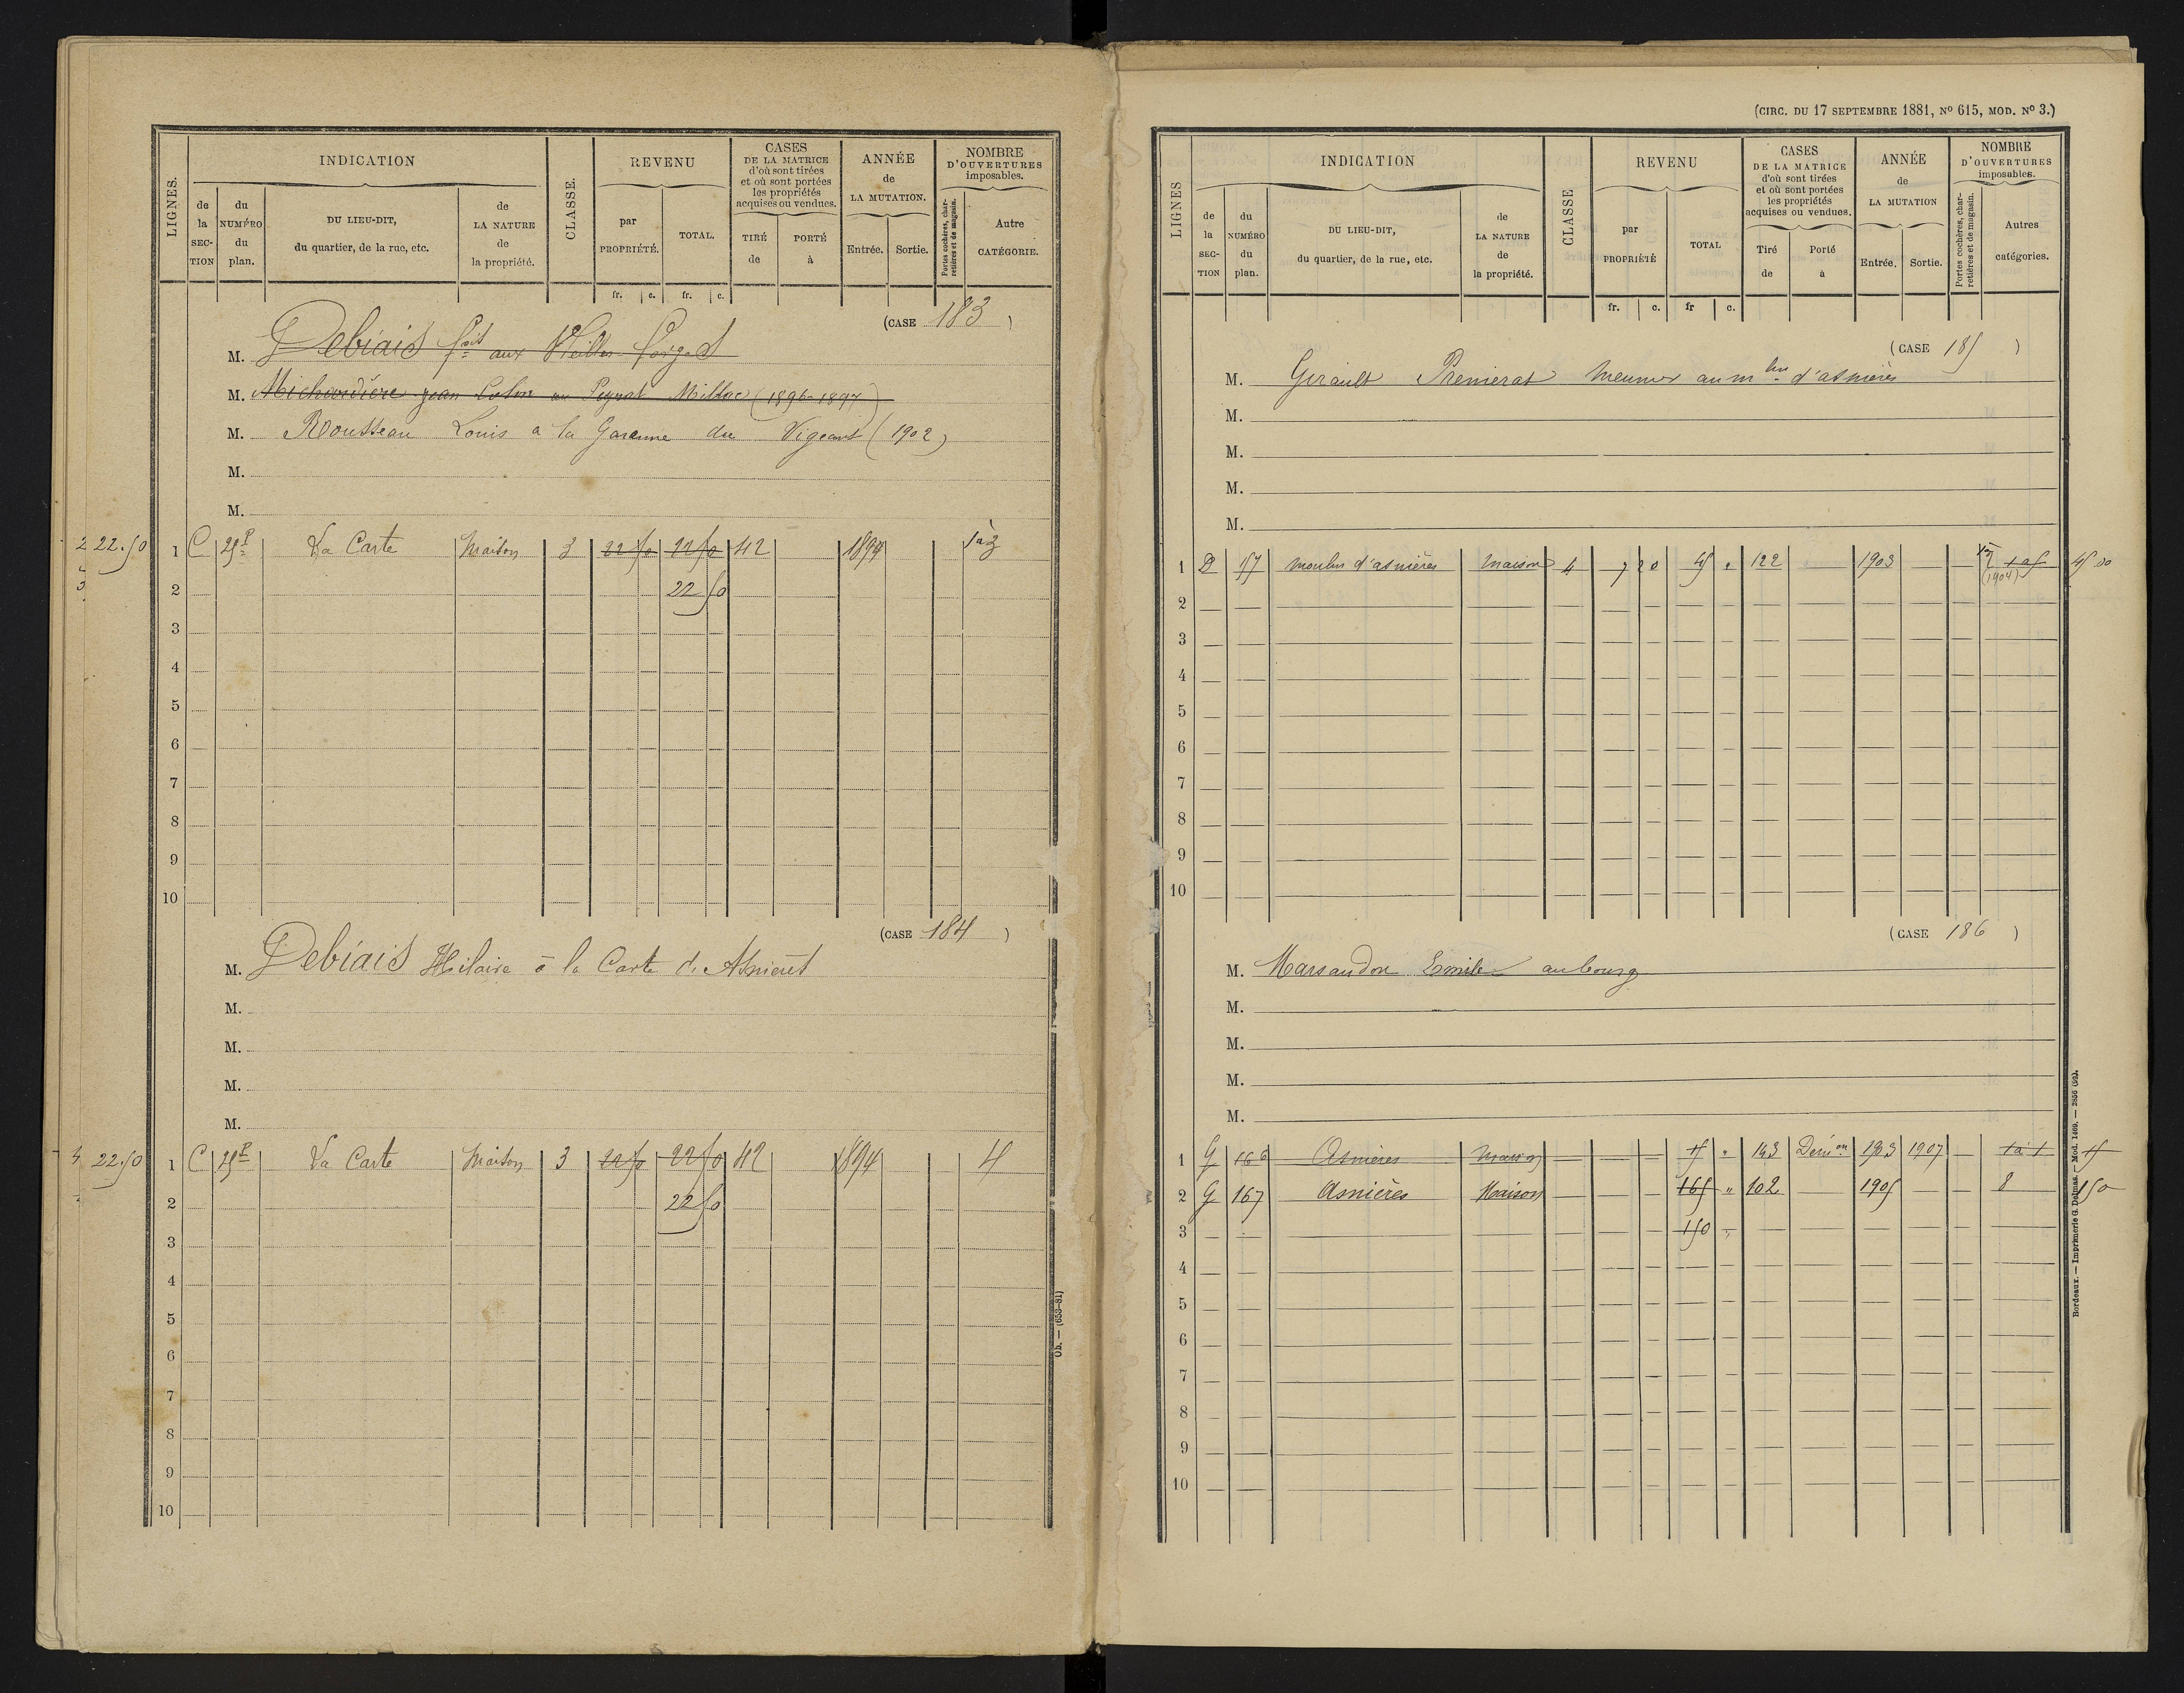 LIGNES.
INDICATION
de la SECTION
du NUMÉRO du plan.
DU LIEU-DIT, du quartier, de la rue, etc.
de LA NATURE de la propriété.
CLASSE.
REVENU
par PROPRIÉTÉ.
TOTAL.
CASES DE LA MATRICE d'où sont tirées et où sont portées les propriétés acquises ou vendues.
TIRÉ de
PORTÉ à
ANNÉE de LA MUTATION.
Entrée.
Sortie.
NOMBRE D'OUVERTURES imposables.
Portes cochères, charretières et de magasin.
Autre CATÉGORIE.
fr. c. fr. c.
(CASE 183)
M. Debiais aux Vieilles Forges
M. Michaudière Jean Colon au Peyrat Millac (1896-1897)
M. Rousseau Louis à la Garenne du Vigeant (1902)
M.
M.
2 22.50
1 C 25P La Carte Maison 3 22 50 22 50 42 1894 1à3
3
2 22 50
3
4
5
6
7
8
9
10
(CASE 184)
M. Debiais Hilaire à la Carte d'Asnières
M.
M.
M.
M.
4 22.50
1 C 25P La Carte Maison 3 22 50 22 50 42 1894 4
2 22 50
3
4
5
6
7
8
9
10
Ob. — (653-81)
(CIRC. DU 17 SEPTEMBRE 1881, No 615, MOD. No 3.)
LIGNES
INDICATION
de la SECTION
du NUMÉRO du plan.
DU LIEU-DIT, du quartier, de la rue, etc.
de LA NATURE de la propriété.
CLASSE
REVENU
par PROPRIÉTÉ
TOTAL
CASES DE LA MATRICE d'où sont tirées et où sont portées les propriétés acquises ou vendues.
Tiré de
Porté à
ANNÉE de LA MUTATION
Entrée.
Sortie.
NOMBRE D'OUVERTURES imposables.
Portes cochères, charretières et de magasin.
Autres catégories.
fr. c. fr c.
(CASE 185)
M. Girault Premierat meunier au min d'asnières
M.
M.
M.
M.
1 D 57 moulin d'asnières maison 4 7 20 45 " 122 1903 1 à 5 45 00
(1904)
2
3
4
5
6
7
8
9
10
(CASE 186)
M. Marsaudon Emile au bourg
M.
M.
M.
M.
1 G 166 Asnières maison 15 " 143 Démon 1903 1907 1 à 1 15
2 G 167 Asnières Maison 165 " 102 1905 8 150
3 150 "
4
5
6
7
8
9
10
Bordeaux. — Imprimerie G. Delmas. — Mod. 1469. — 2856 (92).